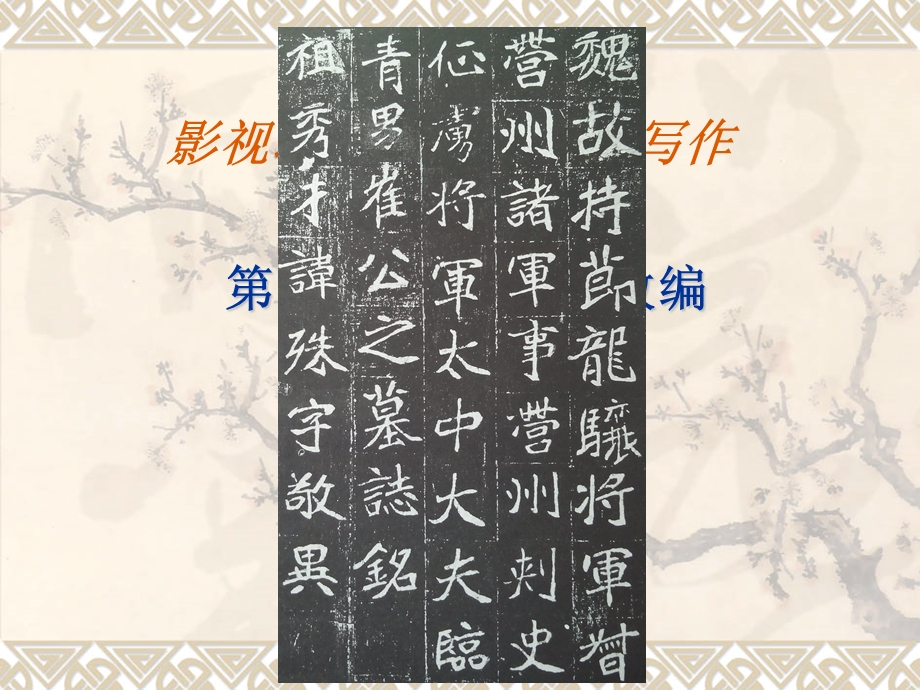 影视 写作
第 编
魏故持節龍驤将軍督
營州諸軍事營州刺史
征虜将軍太中大夫臨
青男崔公之墓誌銘
祖秀才諱殊字敬異